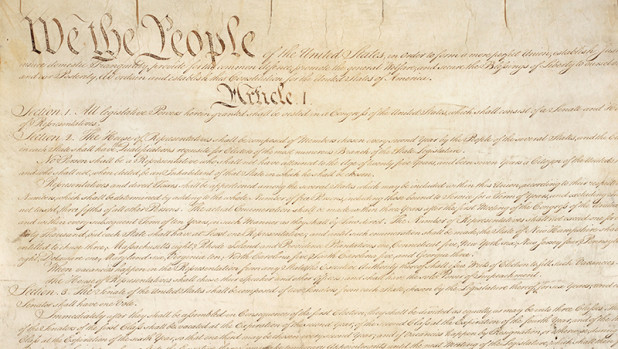 We the People of the United States, in Order to form a more perfect Union, establish
insure domestic Tranquility, provide for the common defence, promote the general Welfare, and secure the Blessings of Liberty to
and our Posterity, do ordain and establish this Constitution for the United States of America.
Article. I.
Section. 1. All legislative Powers herein granted shall be vested in a Congress of the United States, which shall consist of a Senate and
of Representatives.
Section. 2. The House of Representatives shall be composed of Members chosen every second Year by the People of the several States, and the
in each State shall have Qualifications requisite for Electors of the most numerous Branch of the State Legislature.
No Person shall be a Representative who shall not have attained to the Age of twenty five Years, and been seven Years a Citizen of the United
and who shall not, when elected, be an Inhabitant of that State in which he shall be chosen.
Representatives and direct Taxes shall be apportioned among the several States which may be included within this Union, according to their respective
Numbers, which shall be determined by adding to the whole Number of free Persons, including those bound to Service for a Term of Years,
not taxed, three fifths of all other Persons. The actual Enumeration shall be made within three Years after the first Meeting of the Congress of the United
and within every subsequent Term of ten Years, in such Manner as they shall by Law direct. The Number of Representatives shall not exceed one for
thirty Thousand, but each State shall have at Least one Representative; and until such enumeration shall be made, the State of New Hampshire shall
entitled to chuse three, Massachusetts eight, Rhode Island and Providence Plantations one, Connecticut five, New York six, New Jersey four,
eight, Delaware one, Maryland six, Virginia ten, North Carolina five, South Carolina five, and Georgia three.
When vacancies happen in the Representation from any State, the Executive Authority thereof shall issue Writs of Election to fill such Vacancies.
The House of Representatives shall chuse their Speaker and other Officers; and shall have the sole Power of Impeachment.
Section. 3. The Senate of the United States shall be composed of two Senators from each State, chosen by the Legislature thereof, for six Years; and
Senator shall have one Vote.
Immediately after they shall be assembled in Consequence of the first Election, they shall be divided as equally as may be into three Classes.
of the Senators of the first Class shall be vacated at the Expiration of the second Year, of the second Class at the Expiration of the fourth Year,
Class at the Expiration of the sixth Year, so that one third may be chosen every second Year; and if Vacancies happen by Resignation, or otherwise,